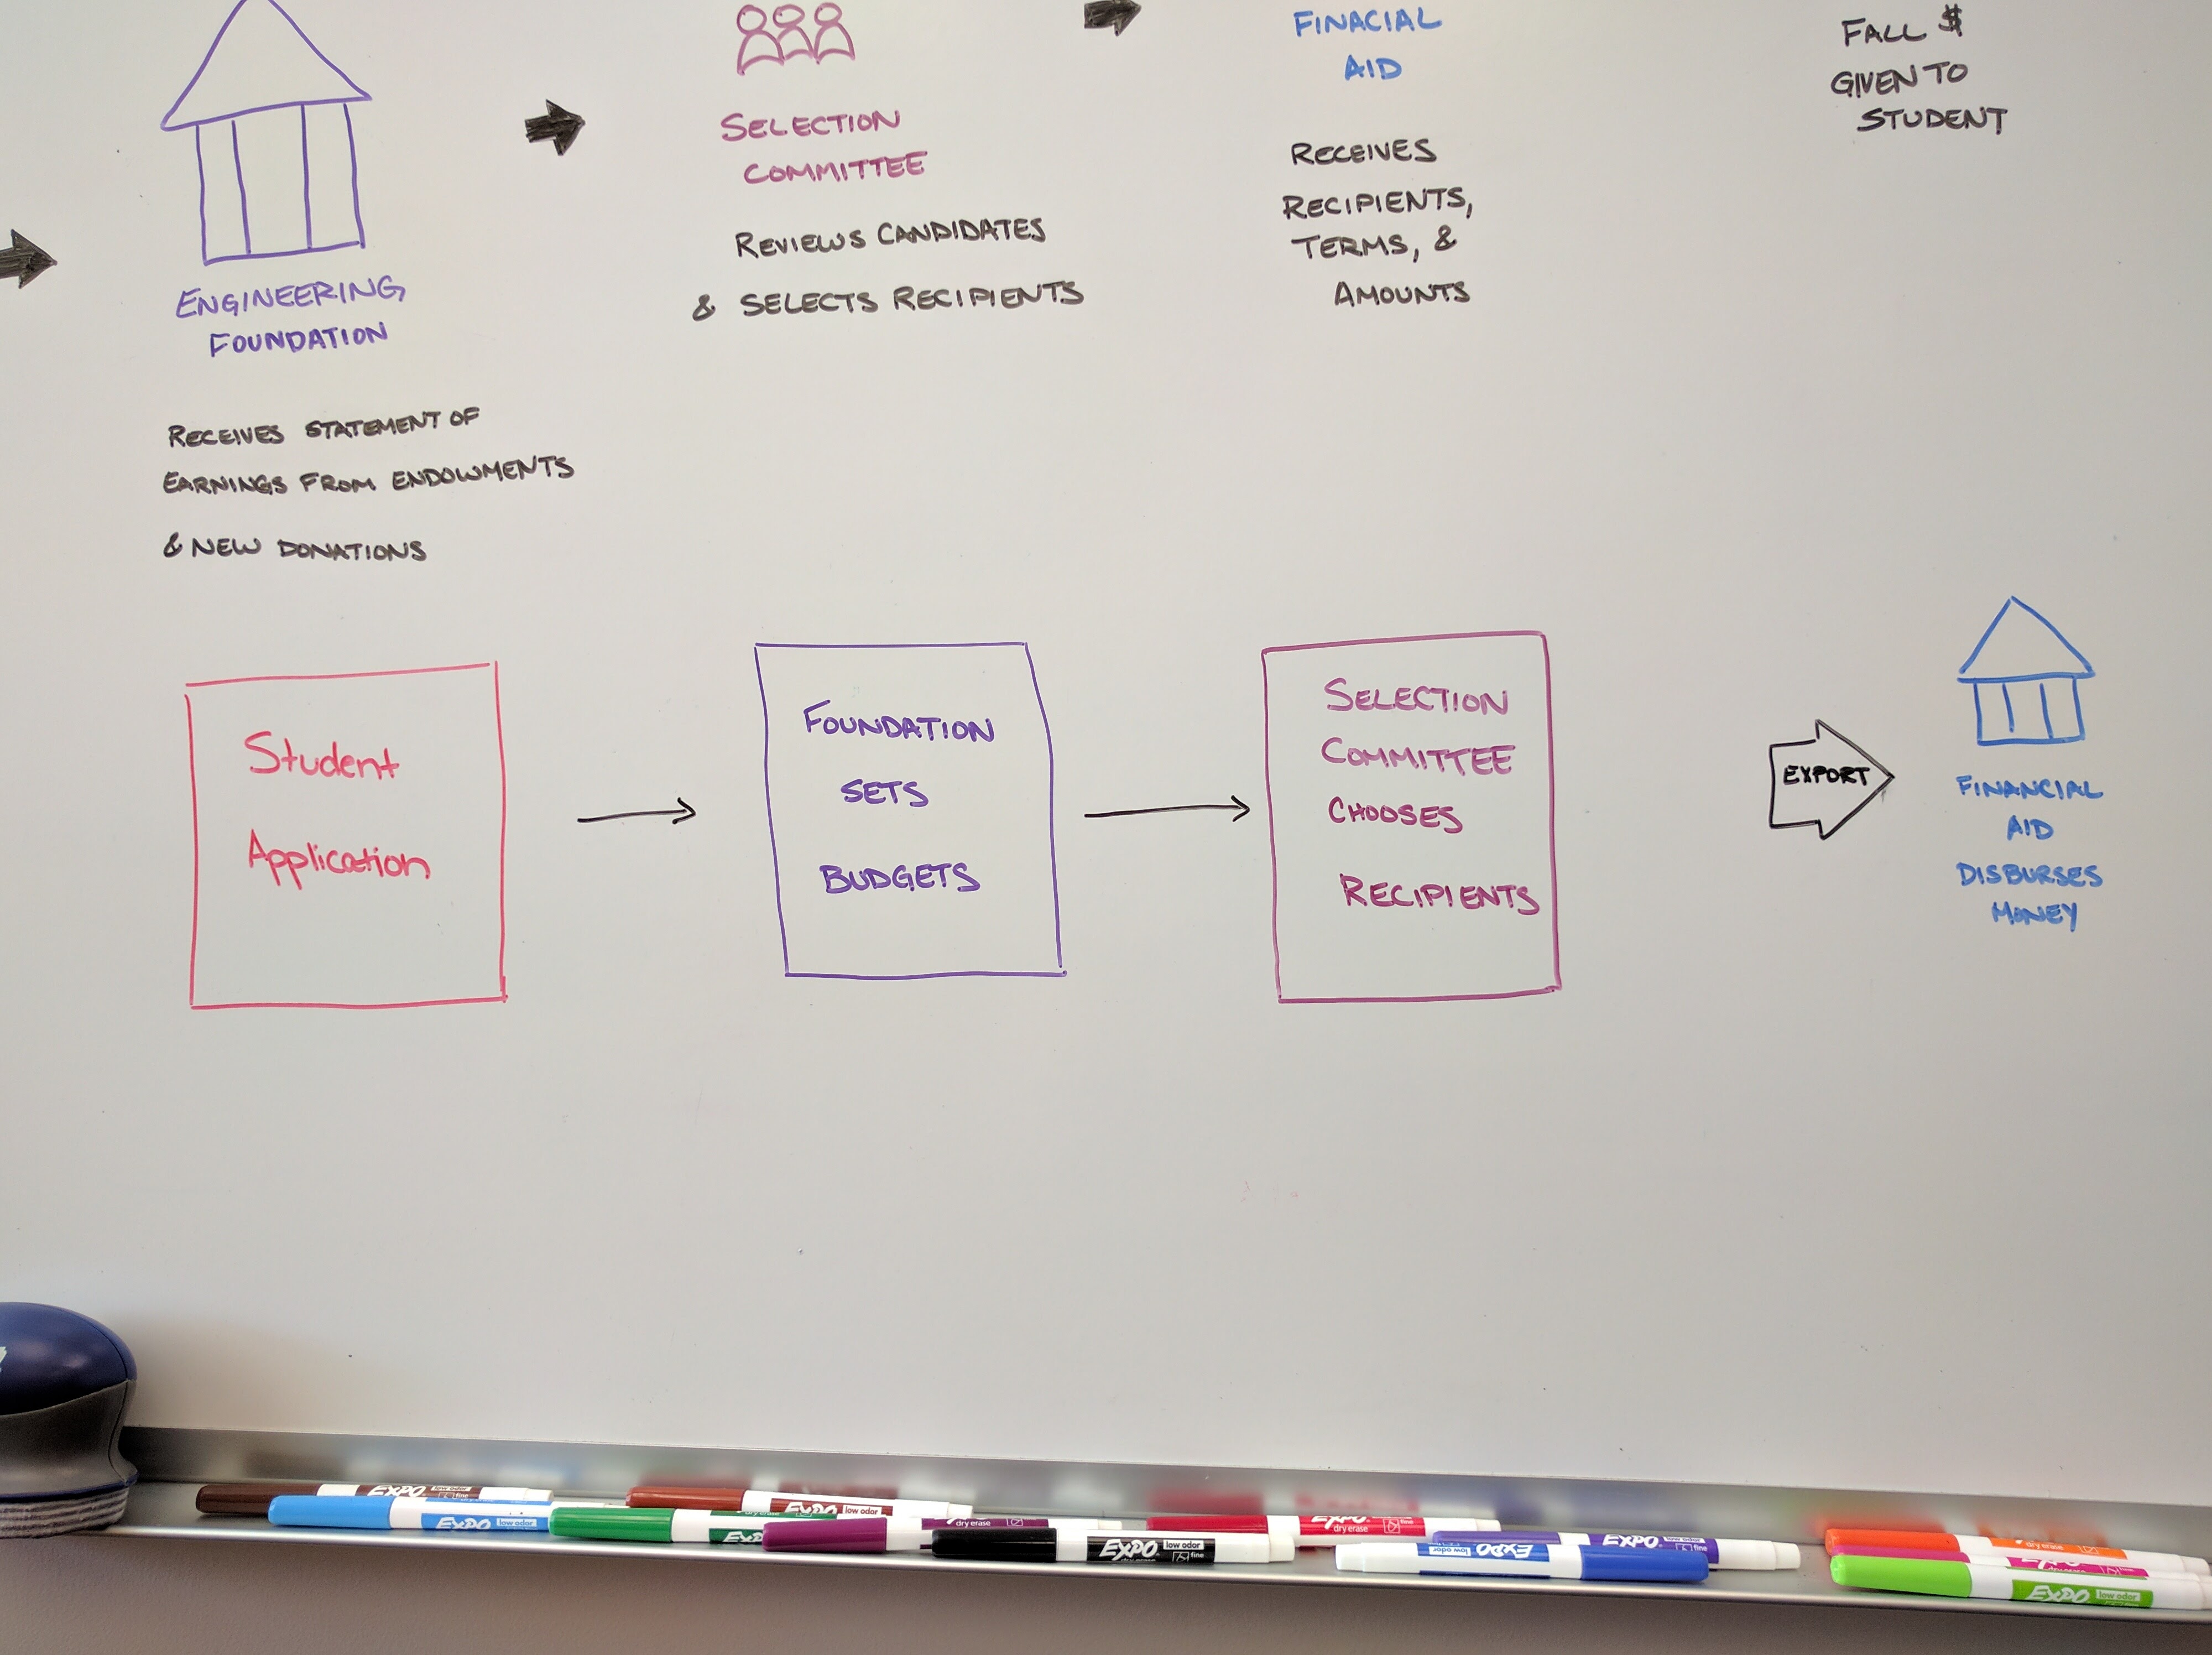 ENGINEERING
FOUNDATION
RECEIVES STATEMENT OF
EARNINGS FROM ENDOWMENTS
& NEW DONATIONS
SELECTION
COMMITTEE
REVIEWS CANDIDATES
& SELECTS RECIPIENTS
FINACIAL
AID
RECEIVES
RECIPIENTS,
TERMS, &
AMOUNTS
FALL $
GIVEN TO
STUDENT
Student
Application
FOUNDATION
SETS
BUDGETS
SELECTION
COMMITTEE
CHOOSES
RECIPIENTS
EXPORT
FINANCIAL
AID
DISBURSES
MONEY
EXPO low odor fine
EXPO low odor
EXPO low odor
dry erase
EXPO low odor fine
dry erase
EXPO
dry erase
EXPO low odor
EXPO low odor fine
dry erase
EXPO
EXPO low odor